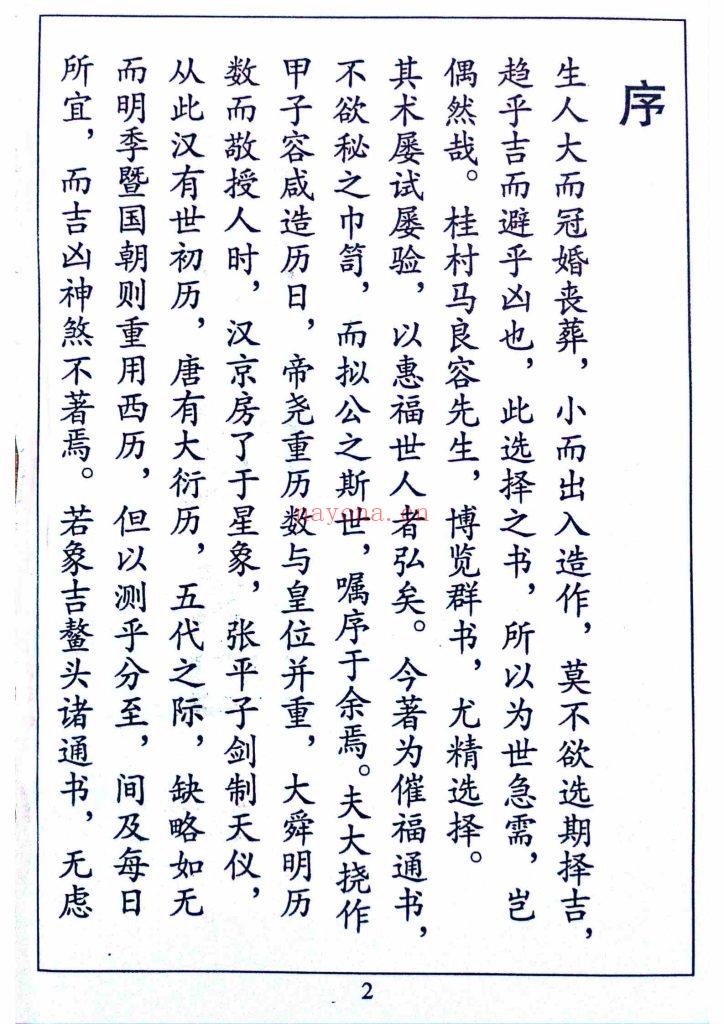 序
生人大而冠婚丧葬，小而出入造作，莫不欲选期择吉，
趋乎吉而避乎凶也，此选择之书，所以为世急需，岂
偶然哉。桂村马良容先生，博览群书，尤精选择。
其术屡试屡验，以惠福世人者弘矣。今著为催福通书，
不欲秘之巾笥，而拟公之斯世，嘱序于余焉。夫大挠作
甲子容咸造历日，帝尧重历数与皇位并重，大舜明历
数而敬授人时，汉京房了于星象，张平子剑制天仪，
从此汉有世初历，唐有大衍历，五代之际，缺略如无
而明季暨国朝则重用西历，但以测乎分至，间及每日
所宜，而吉凶神煞不著焉。若象吉鳌头诸通书，无虑
nayona.cn
2